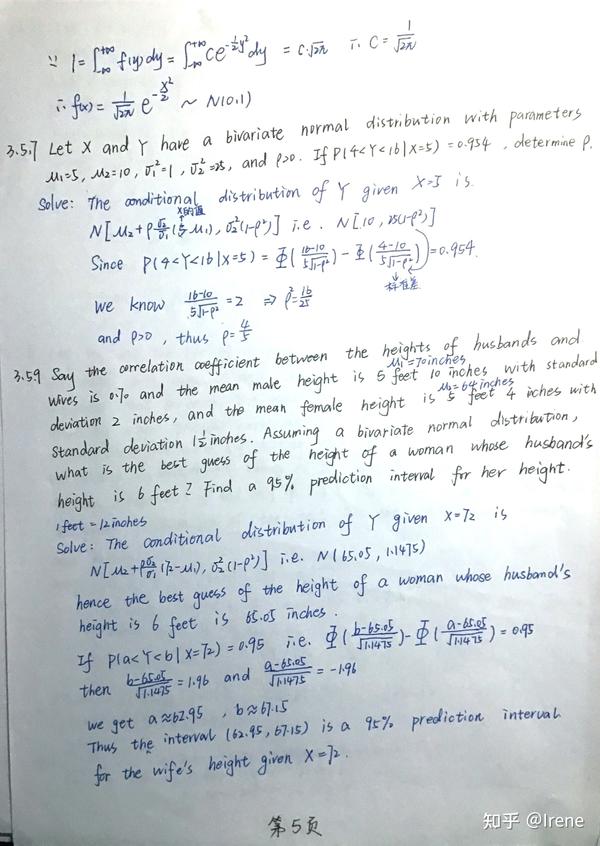 ∵ 1 = ∫_{-∞}^{+∞} f(y)dy = ∫_{-∞}^{+∞} C e^{-\frac{1}{2}y²} dy = C·√2π ∴ C = 1/√2π
∴ f(x) = 1/√2π e^{-x²/2} ~ N(0,1)
3.5.7 Let X and Y have a bivariate normal distribution with parameters
μ₁=5, μ₂=10, σ₁²=1, σ₂²=25, and ρ>0. If P(4<Y<16|X=5)=0.954, determine ρ.
Solve: The conditional distribution of Y given X=5 is
X的值
N[μ₂+ρσ₂/σ₁(5-μ₁), σ₂²(1-ρ²)] i.e. N[10, 25(1-ρ²)]
Since P(4<Y<16|X=5) = Φ((16-10)/5√1-ρ²) - Φ((4-10)/5√1-ρ²) = 0.954.
标准差
we know (16-10)/5√1-ρ² = 2 ⇒ ρ² = 16/25
and ρ>0, thus ρ = 4/5
3.5.9 Say the correlation coefficient between the heights of husbands and
μ₁=70inches
wives is 0.70 and the mean male height is 5 feet 10 inches with standard
μ₂=64inches
deviation 2 inches, and the mean female height is 5 feet 4 inches with
standard deviation 1½ inches. Assuming a bivariate normal distribution,
what is the best guess of the height of a woman whose husband's
height is 6 feet? Find a 95% prediction interval for her height.
1feet=12inches
Solve: The conditional distribution of Y given X=72 is
N[μ₂+ρσ₂/σ₁(72-μ₁), σ₂²(1-ρ²)] i.e. N(65.05, 1.1475)
hence the best guess of the height of a woman whose husband's
height is 6 feet is 65.05 inches.
If P(a<Y<b|X=72)=0.95 i.e. Φ((b-65.05)/√1.1475) - Φ((a-65.05)/√1.1475) = 0.95
then (b-65.05)/√1.1475 = 1.96 and (a-65.05)/√1.1475 = -1.96
we get a≈62.95, b≈67.15
Thus the interval (62.95, 67.15) is a 95% prediction interval
for the wife's height given X=72.
第5页
知乎 @Irene